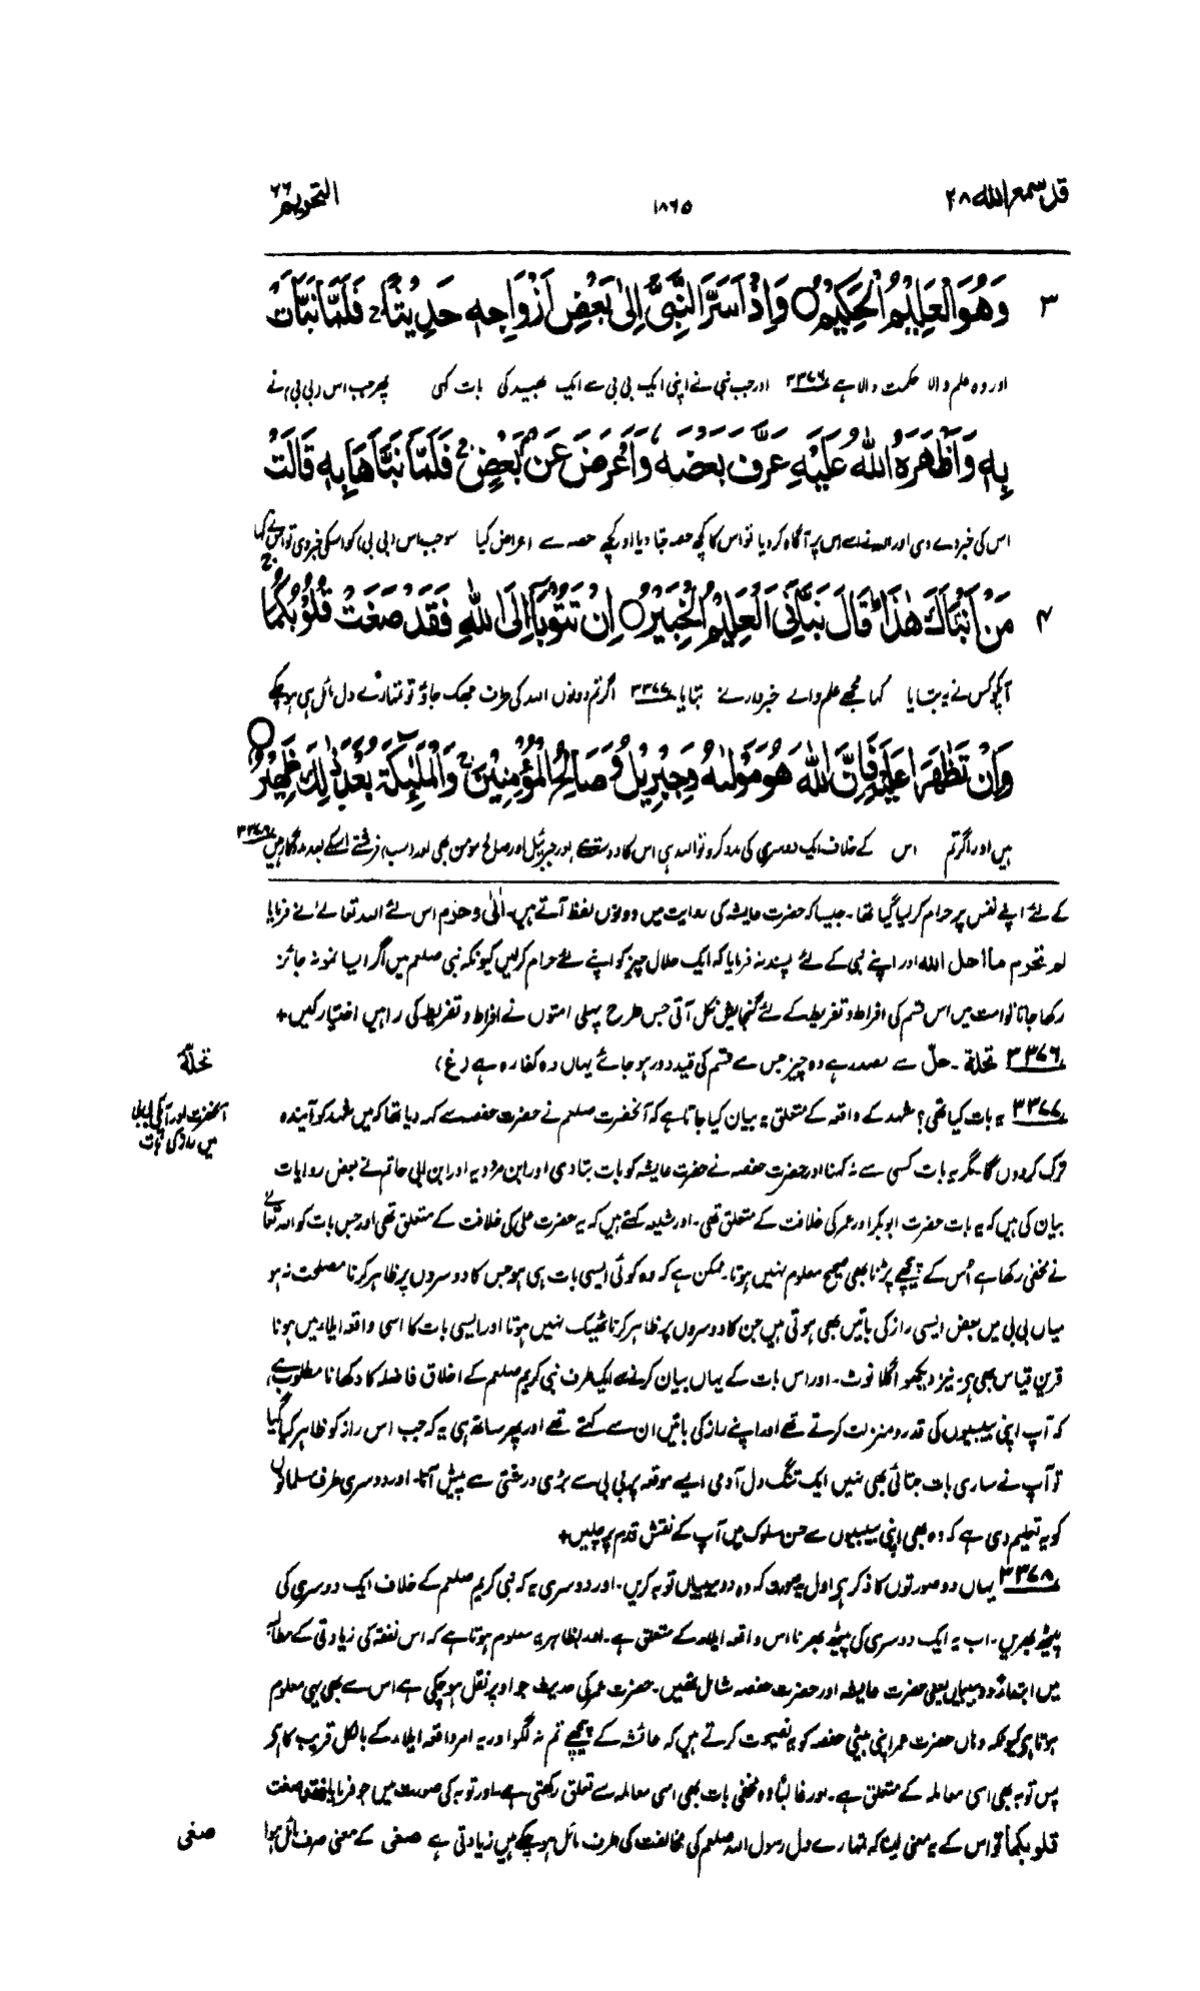 قد سمع الله ٢٨
١٨٦٥
التحریم ٦٦
٣ وَهُوَ الْعَلِيْمُ الْحَكِيْمُ ○ وَاِذْ اَسَرَّ النَّبِيُّ اِلٰى بَعْضِ اَزْوَاجِهٖ حَدِيْثًا ۚ فَلَمَّا نَبَّاَتْ
اور وہ علم والا حکمت والا ہے ٣٣٧٦ اور جب نبی نے اپنی ایک بی بی سے ایک بھید کی بات کہی پھر جب اس (بی بی) نے
بِهٖ وَاَظْهَرَهُ اللّٰهُ عَلَيْهِ عَرَّفَ بَعْضَهٗ وَاَعْرَضَ عَنْۢ بَعْضٍ ۚ فَلَمَّا نَبَّاَهَا بِهٖ قَالَتْ
اس کی خبر دے دی اور اللہ نے اسے اس پر آگاہ کر دیا تو اس کا کچھ حصہ جتا دیا اور کچھ حصہ سے اعراض کیا سو جب اس (بی بی) کو اسکی خبر دی تو اس نے کہا
٤ مَنْ اَنْۢبَاَكَ هٰذَا ؕ قَالَ نَبَّاَنِيَ الْعَلِيْمُ الْخَبِيْرُ ○ اِنْ تَتُوْبَاۤ اِلَى اللّٰهِ فَقَدْ صَغَتْ قُلُوْبُكُمَا ۚ
آپکو کس نے یہ بتایا کہا مجھے علم والے خبردار نے بتایا ٣٣٧٧ اگر تم دونوں اللہ کی طرف جھک جاؤ تو تمہارے دل مائل ہی ہو چکے
وَاِنْ تَظٰهَرَا عَلَيْهِ فَاِنَّ اللّٰهَ هُوَ مَوْلٰىهُ وَجِبْرِيْلُ وَصَالِحُ الْمُؤْمِنِيْنَ ۚ وَالْمَلٰٓئِكَةُ بَعْدَ ذٰلِكَ ظَهِيْرٌ ○
ہیں اور اگر تم اس کے خلاف ایک دوسری کی مدد کرو تو اللہ ہی اس کا دوست ہے اور جبرئیل اور صالح مومن بھی اور (سب) فرشتے اسکے بعد مددگار ہیں ٣٣٧٨
کے لئے اپنے نفس پر حرام کر لیا گیا تھا۔ جیسا کہ حضرت عایشہ کی روایت میں دونوں لفظ آتے ہیں۔ اٰلٰی و حرّم اس لئے اللہ تعالےٰ نے فرمایا
لم تحرم ما احل اللہ اور اپنے نبی کے لئے پسند نہ فرمایا کہ ایک حلال چیز کو اپنے لئے حرام کر لیں کیونکہ نبی صلعم میں اگر ایسا نمونہ جائز
رکھا جاتا تو امت میں اس قسم کی افراط و تفریط کے لئے گنجایش نکل آتی جس طرح پہلی امتوں نے افراط و تفریط کی راہیں اختیار کیں +
تحلّة
٣٣٧٦ تحلة۔ حلّ سے مصدر ہے وہ چیز جس سے قسم کی قید دور ہو جائے یہاں وہ کفارہ ہے (غ)
آنحضرت اور آپکی بی بی
میں راز کی بات
٣٣٧٧ یہ بات کیا تھی؟ شہد کے واقعہ کے متعلق یہ بیان کیا جاتا ہے کہ آنحضرت صلعم نے حضرت حفصہ سے کہہ دیا تھا کہ میں شہد کو آیندہ
ترک کردوں گا۔ مگر یہ بات کسی سے نہ کہنا اور حضرت حفصہ نے حضرت عایشہ کو بات بتا دی اور ابن مردویہ اور ابن ابی حاتم نے بعض روایات
بیان کی ہیں کہ یہ بات حضرت ابوبکر اور عمر کی خلافت کے متعلق تھی۔ اور شیعہ کہتے ہیں کہ یہ حضرت علی کی خلافت کے متعلق تھی اور جس بات کو اللہ تعالےٰ
نے مخفی رکھا ہے اس کے پیچھے پڑنا بھی صحیح معلوم نہیں ہوتا۔ ممکن ہے کہ وہ کوئی ایسی بات ہی ہو جس کا دوسروں پر ظاہر کرنا مصلحت نہ ہو
میاں بی بی میں بعض ایسی راز کی باتیں بھی ہوتی ہیں جن کا دوسروں پر ظاہر کرنا ٹھیک نہیں ہوتا اور ایسی بات کا اسی واقعہ ایلاء میں ہونا
قرین قیاس بھی ہے نیز دیکھو اگلا نوٹ۔ اور اس بات کے یہاں بیان کرنے سے ایک طرف نبی کریم صلعم کے اخلاق فاضلہ کا دکھانا مطلوب ہے
کہ آپ اپنی بیبیوں کی قدر و منزلت کرتے تھے اور اپنے راز کی باتیں ان سے کہتے تھے اور پھر ساتھ ہی یہ کہ جب اس راز کو ظاہر کیا گیا
تو آپ نے ساری بات جتائی بھی نہیں ایک تنگ دل آدمی ایسے موقعہ پر بی بی سے بڑی درشتی سے پیش آتا۔ اور دوسری طرف مسلمانوں
کو یہ تعلیم دی ہے کہ وہ بھی اپنی بیبیوں سے حسن سلوک میں آپ کے نقش قدم پر چلیں +
٣٣٧٨ یہاں دو صورتوں کا ذکر ہے اول یہ صورت کہ وہ دو بیبیاں توبہ کریں۔ اور دوسری یہ کہ نبی کریم صلعم کے خلاف ایک دوسری کی
پیٹھ بھریں۔ اب یہ ایک دوسری کی پیٹھ بھرنا اس واقعہ ایلاء کے متعلق ہے۔ اور بظاہر یہ معلوم ہوتا ہے کہ اس نفقہ کی زیادتی کے مطالبہ
میں ابتداءً دو بیبیاں یعنی حضرت عایشہ اور حضرت حفصہ شامل تھیں۔ حضرت عمر کی حدیث جو اوپر نقل ہو چکی ہے اس سے بھی یہی معلوم
ہوتا ہے کیونکہ وہاں حضرت عمر اپنی بیٹی حفصہ کو یہ نصیحت کرتے ہیں کہ عائشہ کے پیچھے تم نہ لگو اور یہ امر واقعہ ایلاء کے بالکل قریب کا ہے
پس توبہ بھی اسی معاملہ کے متعلق ہے۔ اور غالباً وہ مخفی بات بھی اسی معاملہ سے تعلق رکھتی ہے۔ اور توبہ کی صورت میں جو فرمایا فقد صغت
صغی
قلوبکما تو اس کے یہ معنی لینا کہ تمہارے دل رسول اللہ صلعم کی مخالفت کی طرف مائل ہو چکے ہیں زیادتی ہے صغی کے معنی صرف مائل ہوا